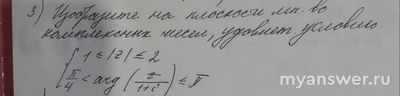 3) Изобразите на плоскости мн-во
комплексных чисел, удовлет. условию
{ 1 ≤ |z| ≤ 2
π/4 < arg (z/(1+i)) ≤ π
myanswer.ru